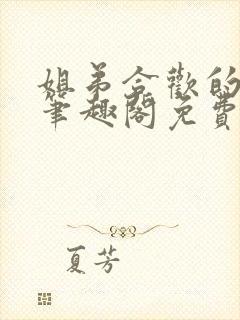 姐弟合歡的
筆趣閣免費
夏芳